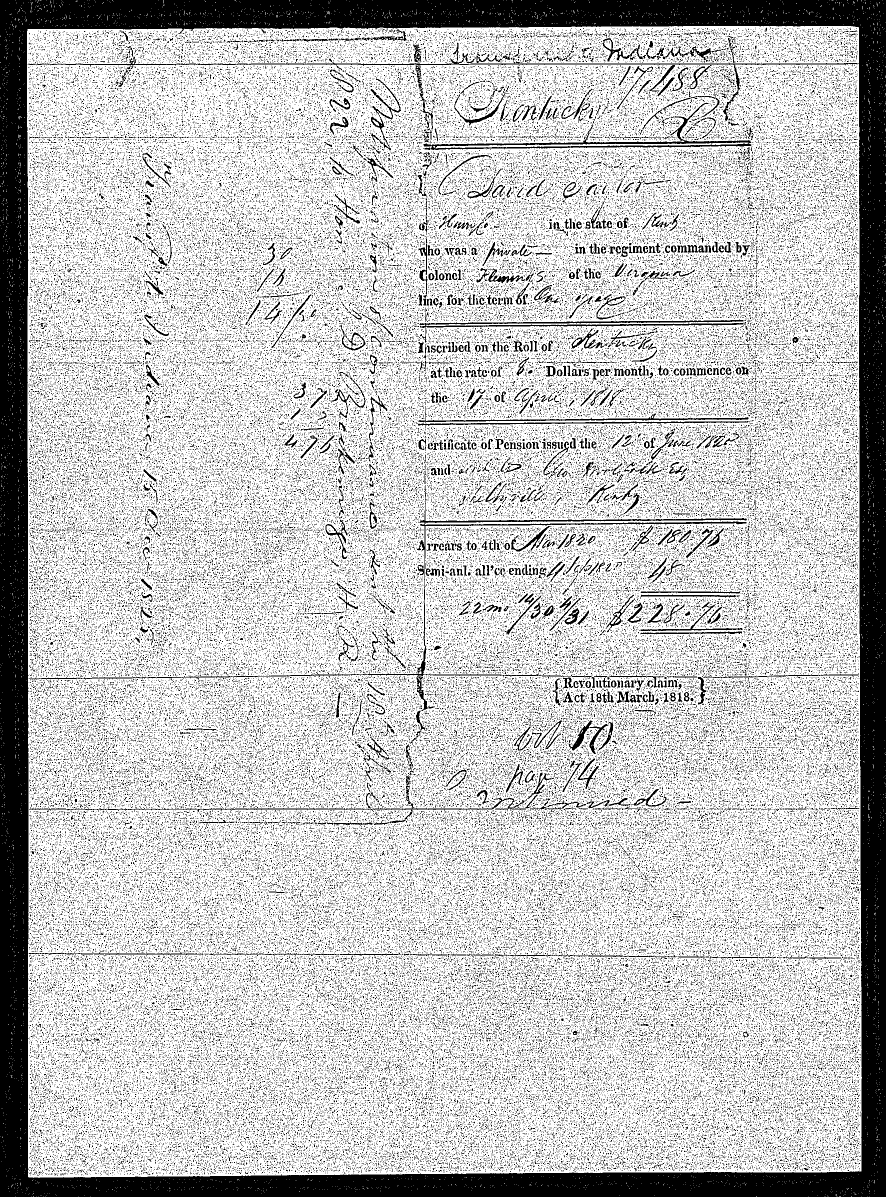 Transferred to Indiana
17,488
Kentucky
David Taylor
of Henry Co. in the state of Kenty
who was a private in the regiment commanded by
Colonel Flemings of the Virginia
line, for the term of One year
Inscribed on the Roll of Kentucky
at the rate of 8. Dollars per month, to commence on
the 17 of April, 1818
Certificate of Pension issued the 12 of June 1820
and sent to Esq
Shelbyville, Kenky
Arrears to 4th of Mar 1820 $ 180.76
Semi-anl. all'ce ending 4 Sep 1820 48
22 mo 14/30 4/31 $228.76
{ Revolutionary claim, }
{ Act 18th March, 1818. }
10
page 74
Continued
Notification of continuance sent the 10th April
1822, to Hon. J. D. Breckenridge, H. R.
30
16
14/30
37
12
476
Transf'd to Indiana 15 Dec 1825,